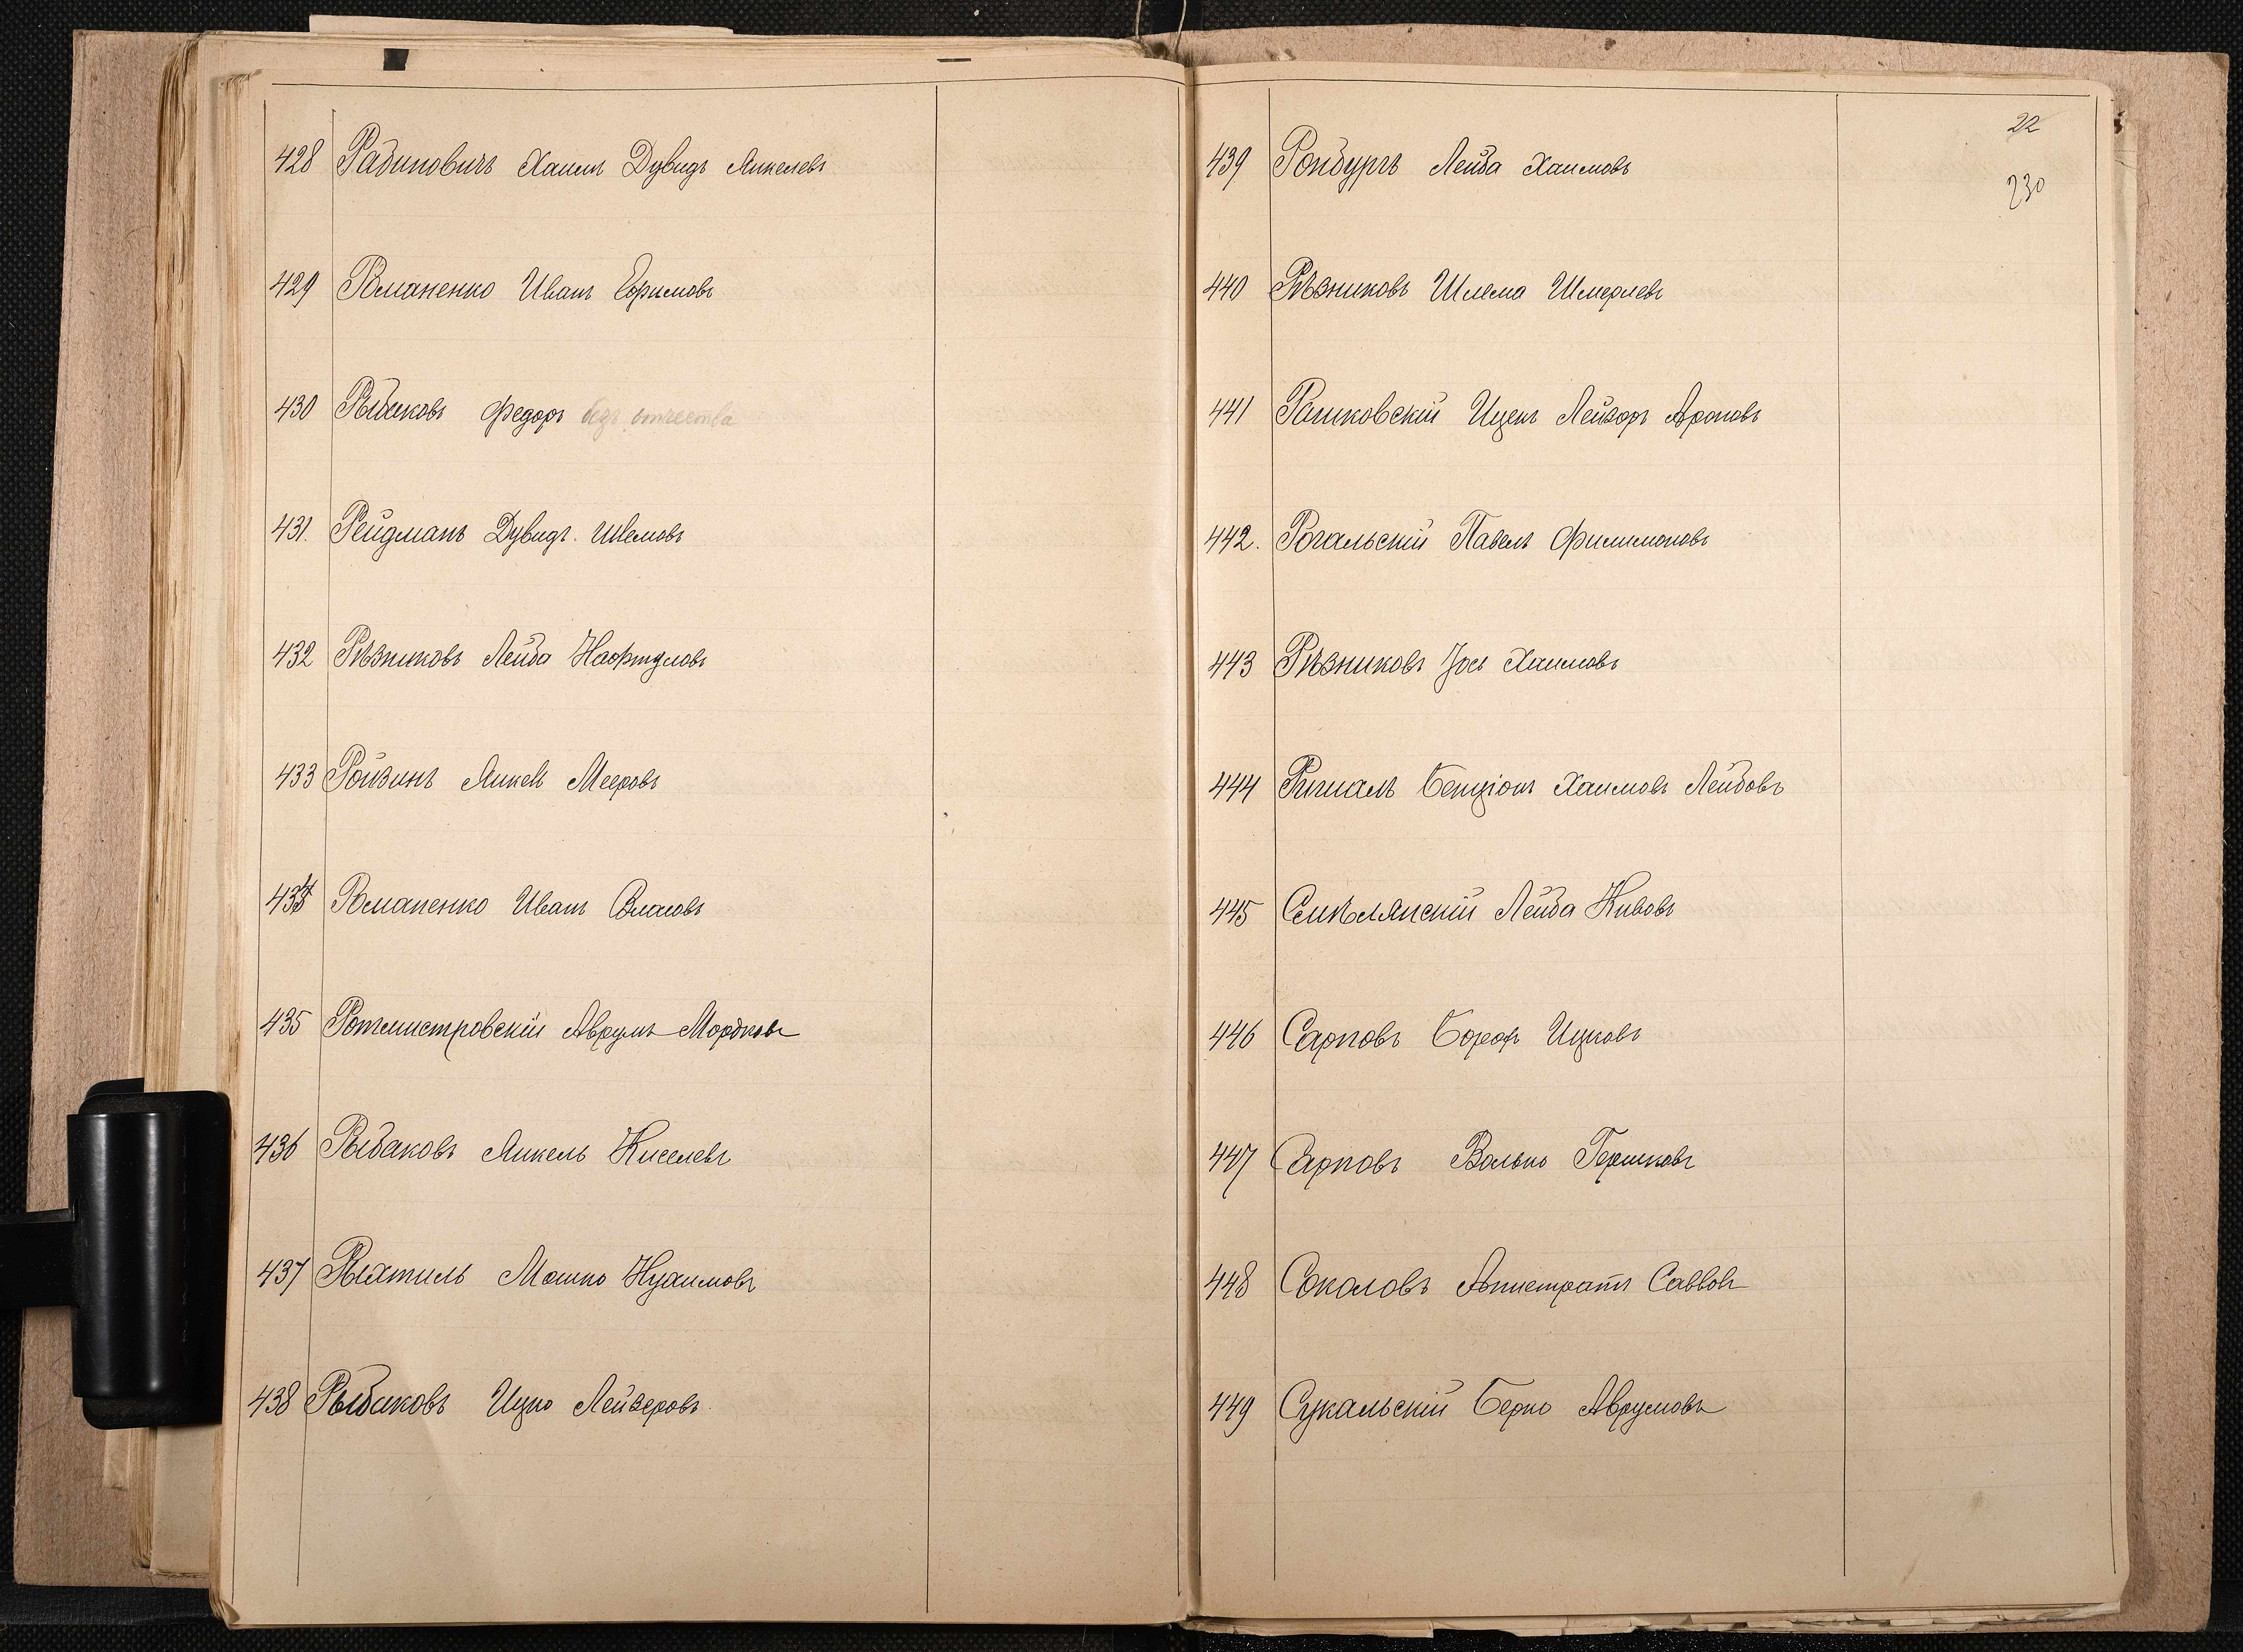 428 Рабиновичъ Хаимъ Дувидъ Янкелевъ
429 Романенко Иванъ Ефимовъ
430 Рыбаковъ Федоръ безъ отчества
431. Рейдманъ Дувидъ Шлемовъ
432 Рѣзниковъ Лейба Нафтуловъ
433 Ройзинъ Янкель Мееровъ
434 Романенко Иванъ Власовъ
435 Ротмистровскій Аврумъ Мордковъ
436 Рыбаковъ Янкель Киселевъ
437 Рыхтиль Мошко Нухимовъ
438 Рыбаковъ Ицко Лейзеровъ
22
230
439 Ронбургъ Лейба Хаимовъ
440 Рѣзниковъ Шлема Шмерлевъ
441 Рашковскій Ицекъ Лейзоръ Ароновъ
442. Рогальскій Павелъ Филимоновъ
443 Рѣзниковъ Іось Хаимовъ
444 Бенціонъ Хаимовъ Лейбовъ
445 Смѣлянскій Лейба Кивовъ
446 Сарповъ Борохъ Ицковъ
447 Сарповъ Волько Гершковъ
448 Соколовъ Савовъ
449 Сукальскій Берко Аврумовъ